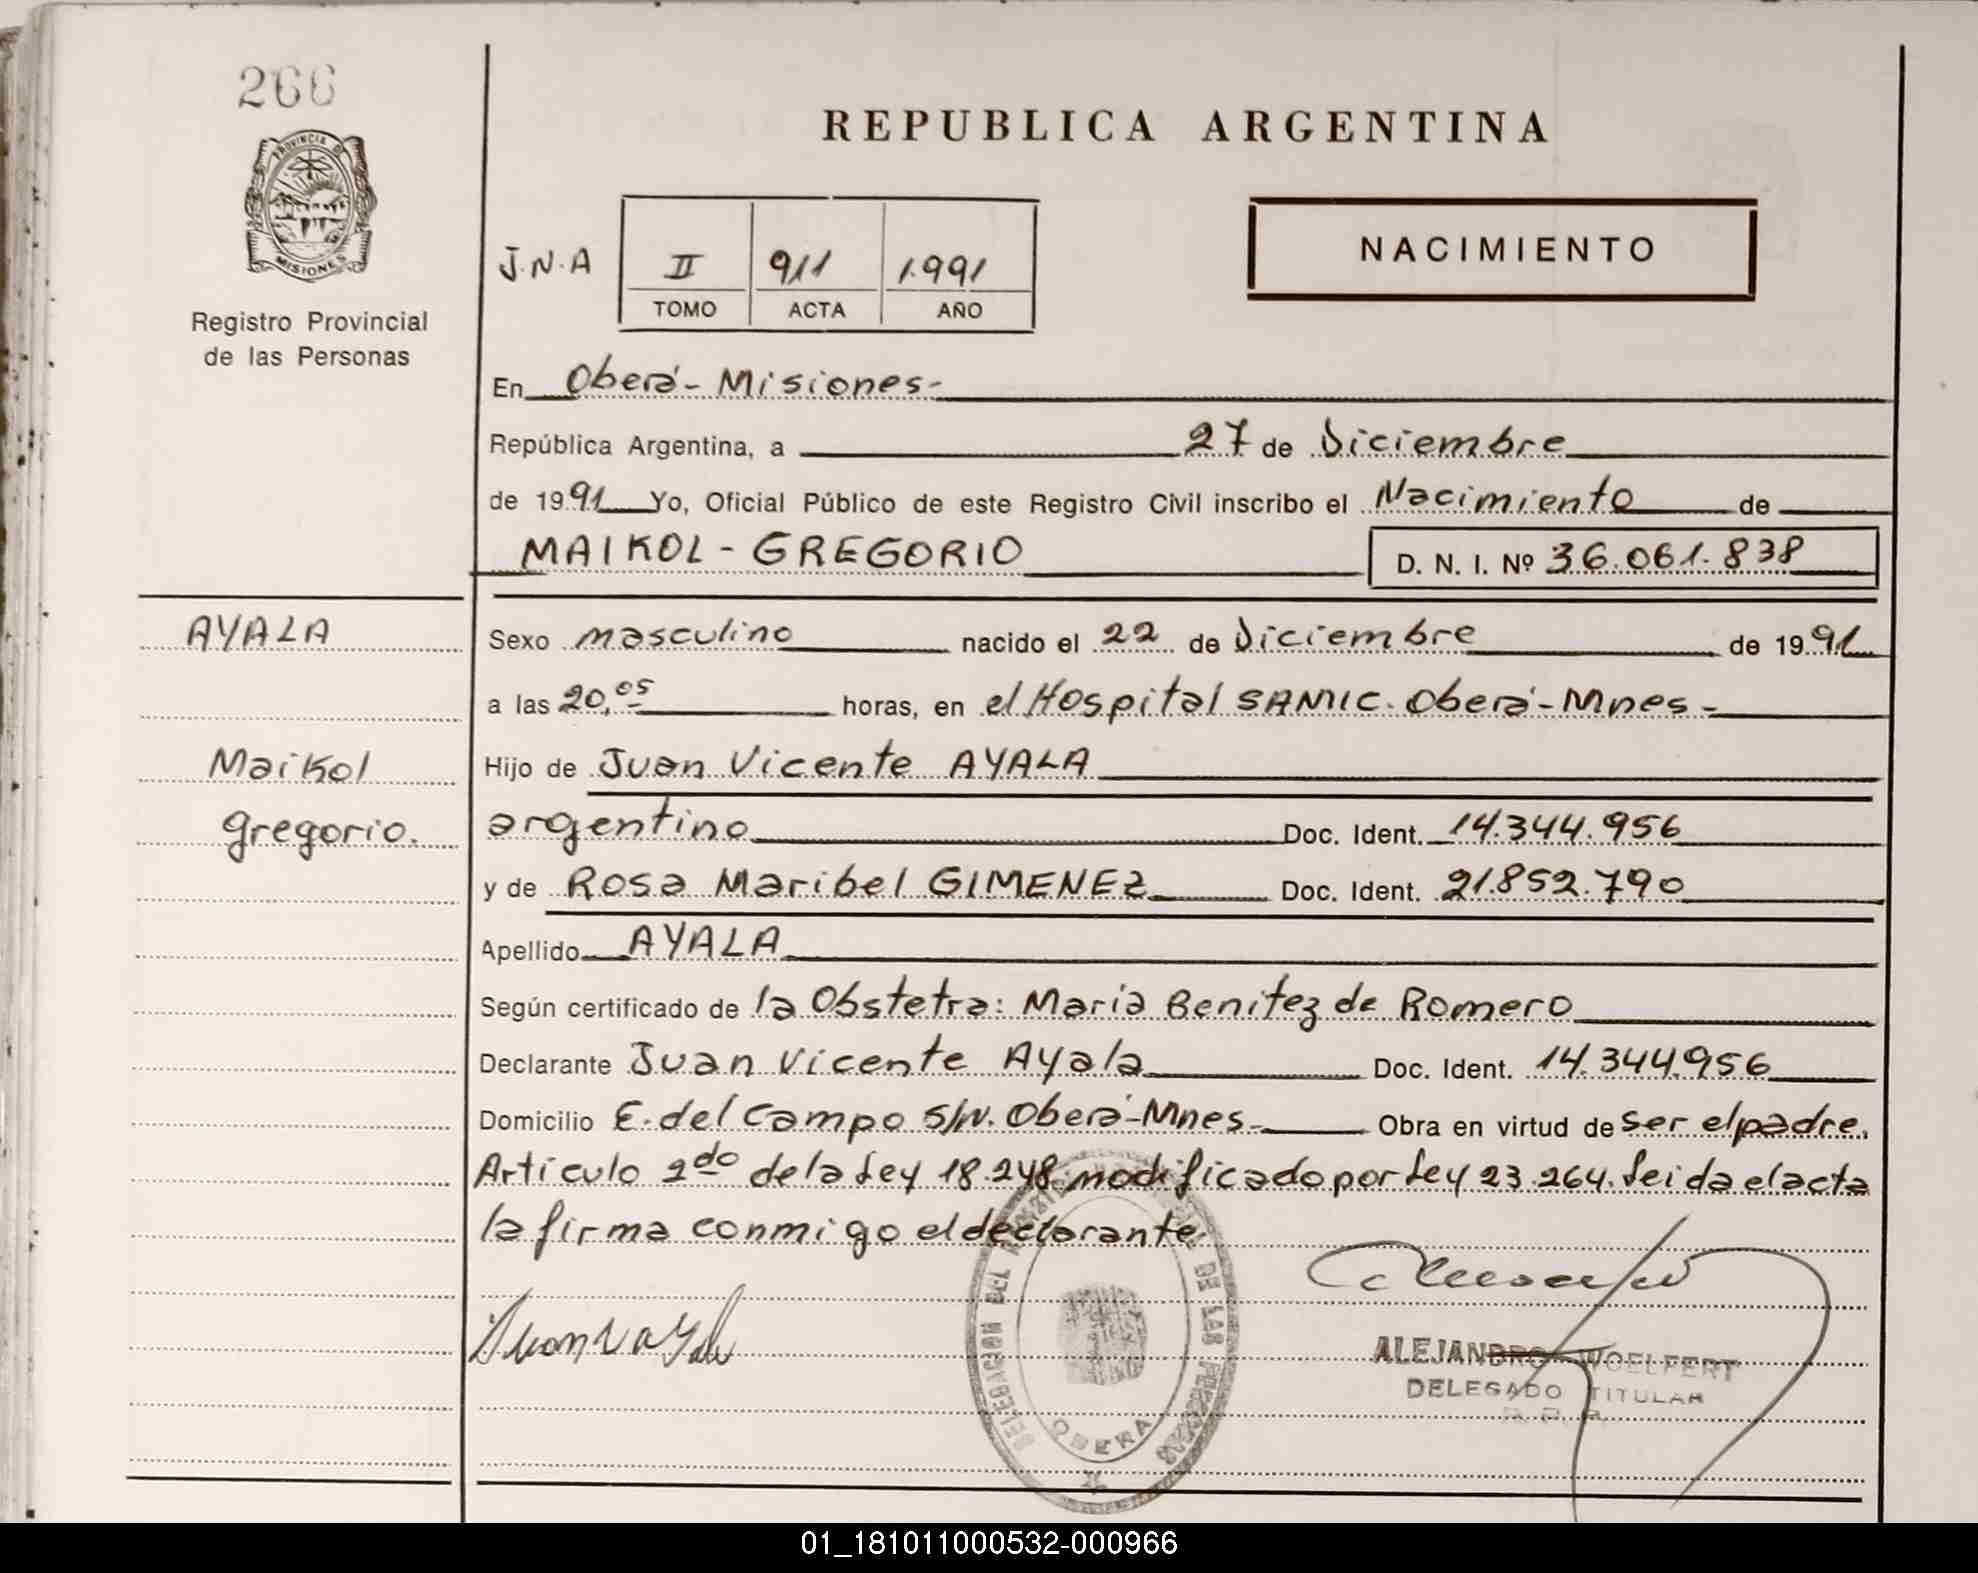 266
PROVINCIA DE
MISIONES
Registro Provincial
de las Personas
REPUBLICA ARGENTINA
NACIMIENTO
J.N.A II 911 1.991
TOMO ACTA AÑO
En Oberá - Misiones -
República Argentina, a 27 de Diciembre
de 1991 Yo, Oficial Público de este Registro Civil inscribo el Nacimiento de
MAIKOL - GREGORIO D. N. I. Nº 36.061.838
AYALA
Maikol
Gregorio.
Sexo masculino nacido el 22 de Diciembre de 1991
a las 20,05 horas, en el Hospital SAMIC. Oberá - Mnes -
Hijo de Juan Vicente AYALA
argentino Doc. Ident. 14.344.956
y de Rosa Maribel GIMENEZ Doc. Ident. 21.852.790
Apellido AYALA
Según certificado de la Obstetra: Maria Benitez de Romero
Declarante Juan Vicente Ayala Doc. Ident. 14.344.956
Domicilio E. del Campo S/N. Oberá - Mnes - Obra en virtud de ser el padre.
Artículo 2do de la Ley 18.248 modificado por Ley 23.264. Leida el acta
la firma conmigo el declarante.
Juan V Ayala
DELEGACION DEL DE LAS PERSONAS
OBERA
ALEJANDRO WOELFERT
DELEGADO TITULAR
01_181011000532-000966